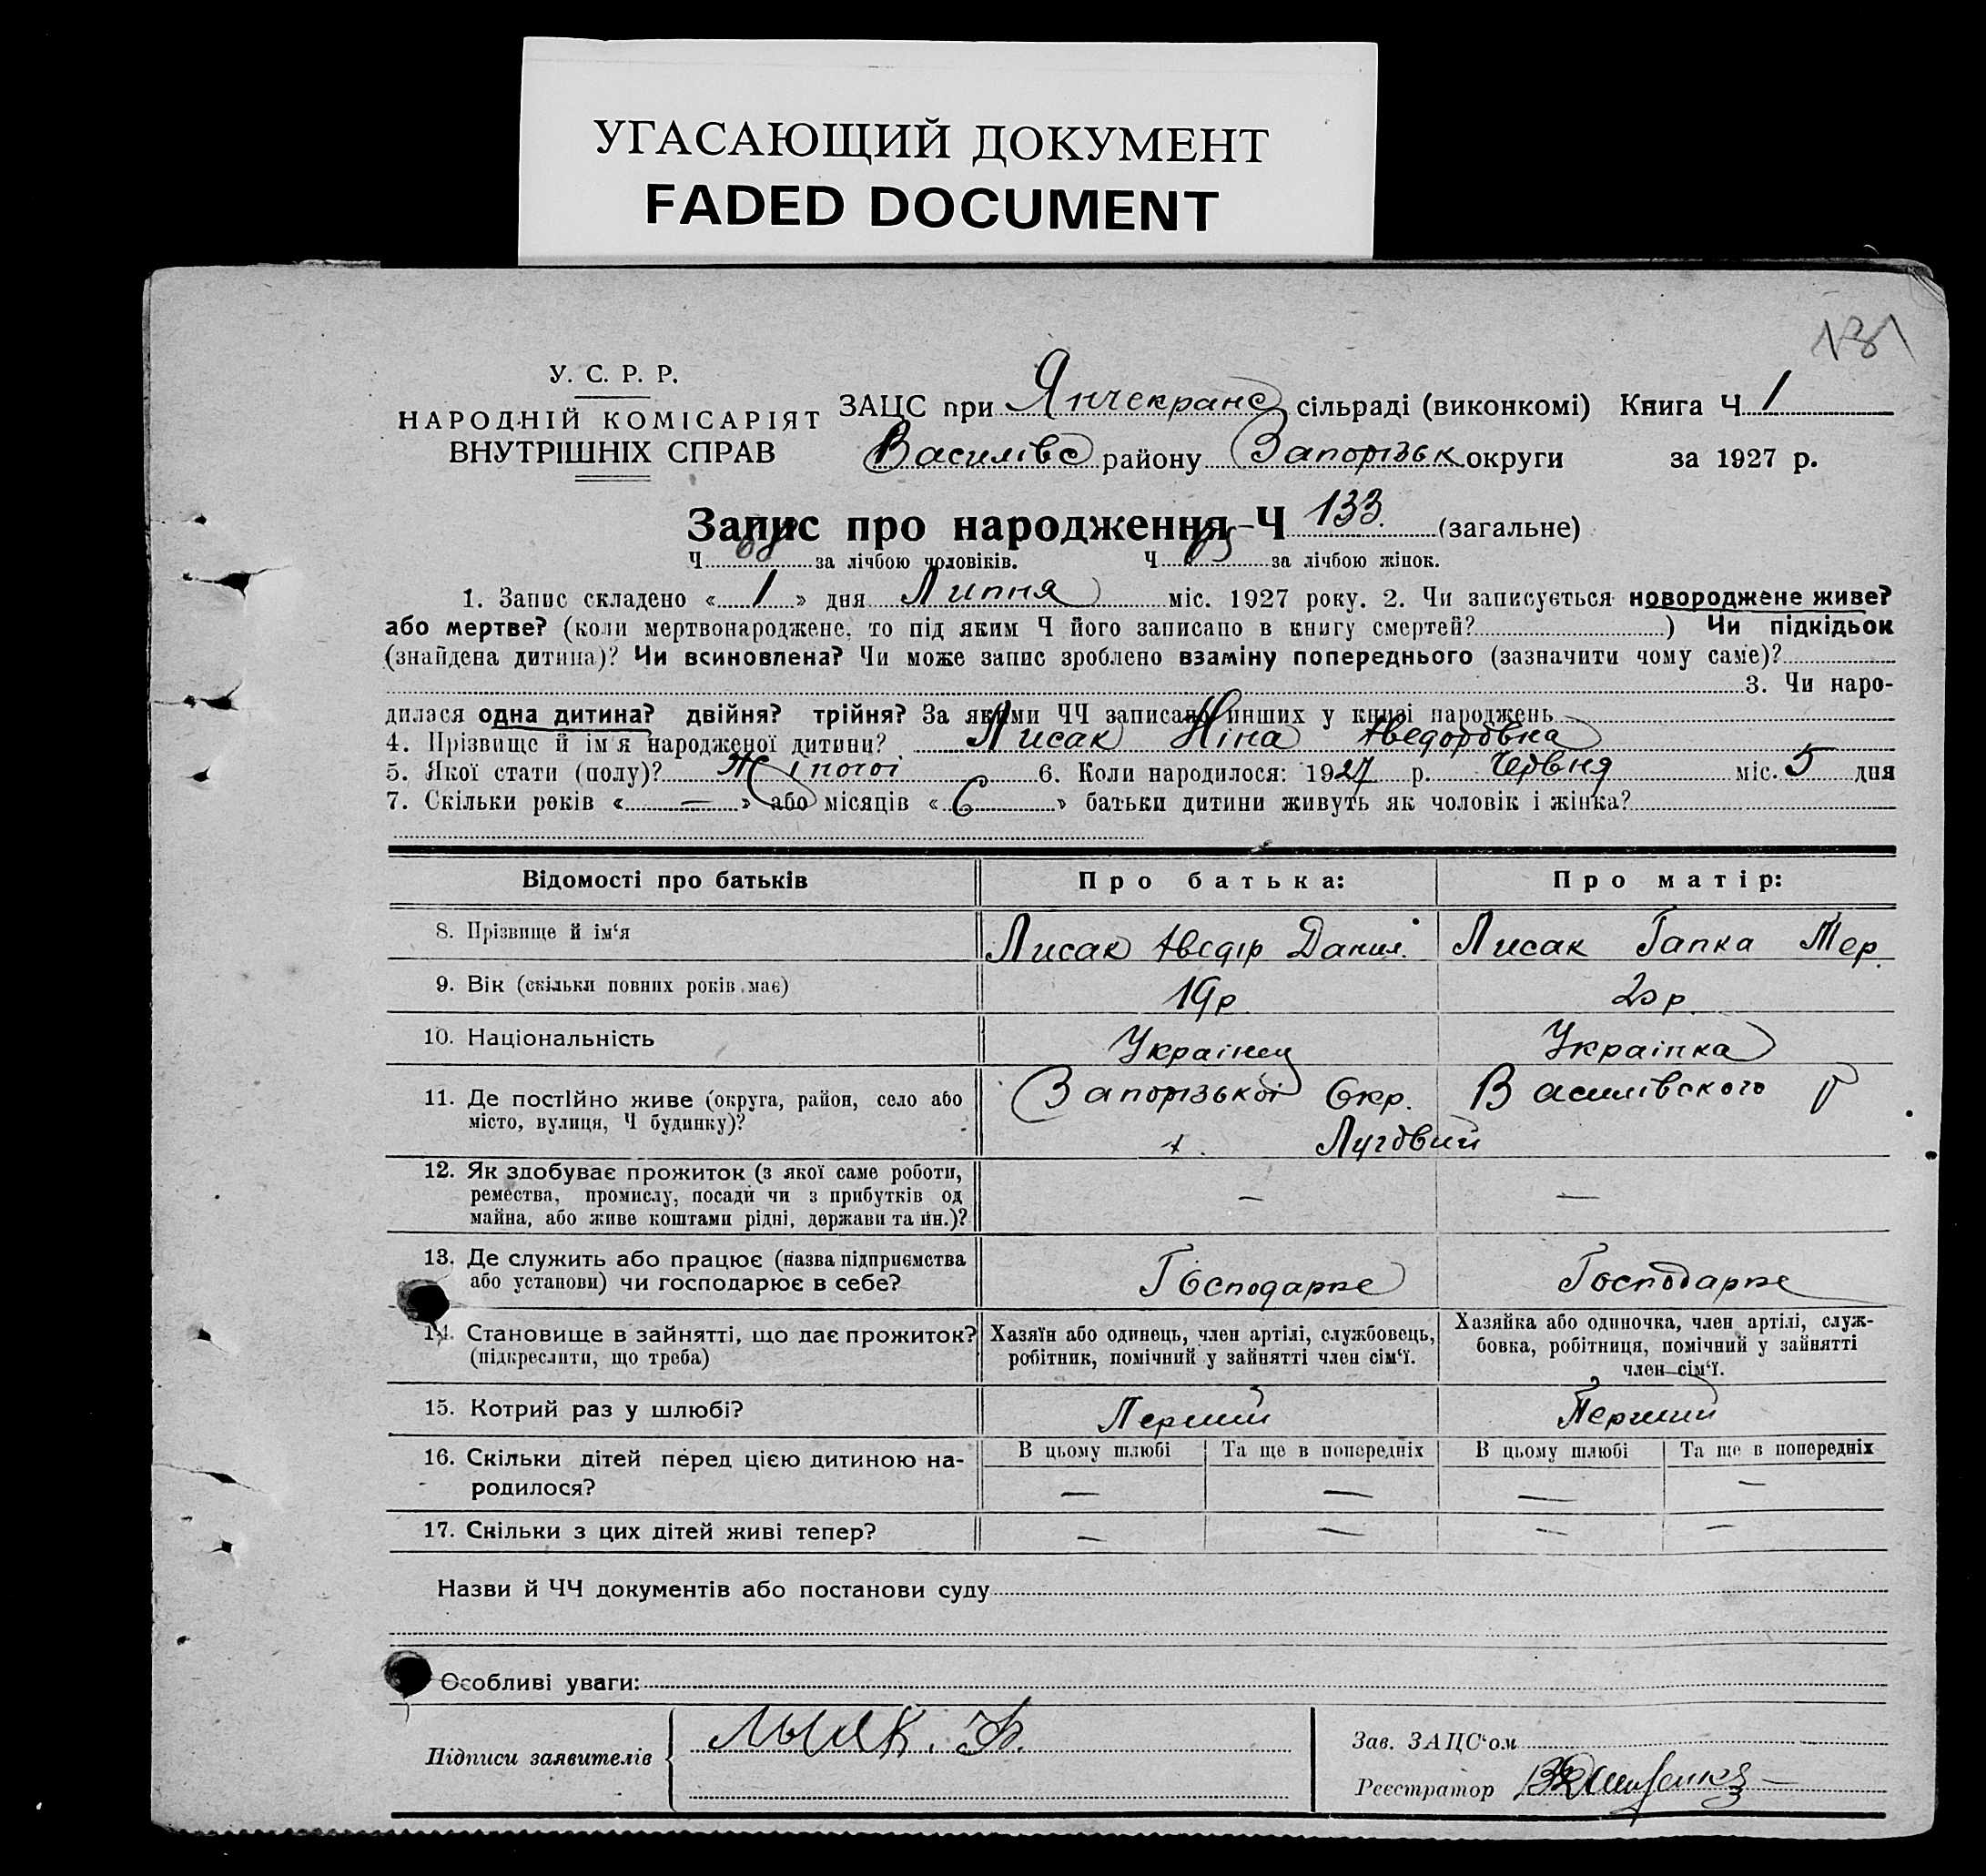 УГАСАЮЩИЙ ДОКУМЕНТ
FADED DOCUMENT
У. С. Р. Р.
НАРОДНІЙ КОМІСАРІЯТ
ВНУТРІШНІХ СПРАВ
ЗАЦС при Янчекранс сільраді (виконкомі) Книга Ч 1
Василівс району Запорізьк округи за 1927 р.
Запис про народження Ч 133 (загальне)
Ч 68 за лічбою чоловіків. Ч 65 за лічбою жінок.
1. Запис складено « 1 » дня Липня міс. 1927 року. 2. Чи записується новороджене живе?
або мертве? (коли мертвонароджене, то під яким Ч його записано в книгу смертей? ) Чи підкідьок
(знайдена дитина)? Чи всиновлена? Чи може запис зроблено взаміну попереднього (зазначити чому саме)?
3. Чи наро-
дилася одна дитина? двійня? трійня? За якими ЧЧ записано инших у книзі народжень
4. Прізвище й ім'я народженої дитини? Лисак Ніна Хведоровна
5. Якої стати (полу)? Жіночої 6. Коли народилося: 1927 р. Червня міс. 5 дня
7. Скільки років « — » або місяців « 6 » батьки дитини живуть як чоловік і жінка?
Відомості про батьків Про батька: Про матір:
8. Прізвище й ім'я Лисак Хведір Данил. Лисак Гапка
9. Вік (скільки повних років має) 19р 20р.
10. Національність Українец Українка
11. Де постійно живе (округа, район, село або Запорізької Окр. Василівского Р
місто, вулиця, Ч будинку)? х. Луговий
12. Як здобуває прожиток (з якої саме роботи,
ремества, промислу, посади чи з прибутків од — —
майна, або живе коштами рідні, держави та ин.)?
13. Де служить або працює (назва підприємства
або установи) чи господарює в себе? Господарже Господарже
14. Становище в зайнятті, що дає прожиток? Хазяїн або одинець, член артілі, службовець, Хазяйка або одиночка, член артілі, служ-
(підкреслити, що треба) робітник, помічний у зайнятті член сім'ї. бовка, робітниця, помічний у зайнятті
член сім'ї.
15. Котрий раз у шлюбі? Перший Перший
16. Скільки дітей перед цією дитиною на- В цьому шлюбі Та ще в попередніх В цьому шлюбі Та ще в попередніх
родилося? — — — —
17. Скільки з цих дітей живі тепер? — — — —
Назви й ЧЧ документів або постанови суду
Особливі уваги:
Підписи заявителів Лысак. Ф.
Зав. ЗАЦС'ом
Реєстратор